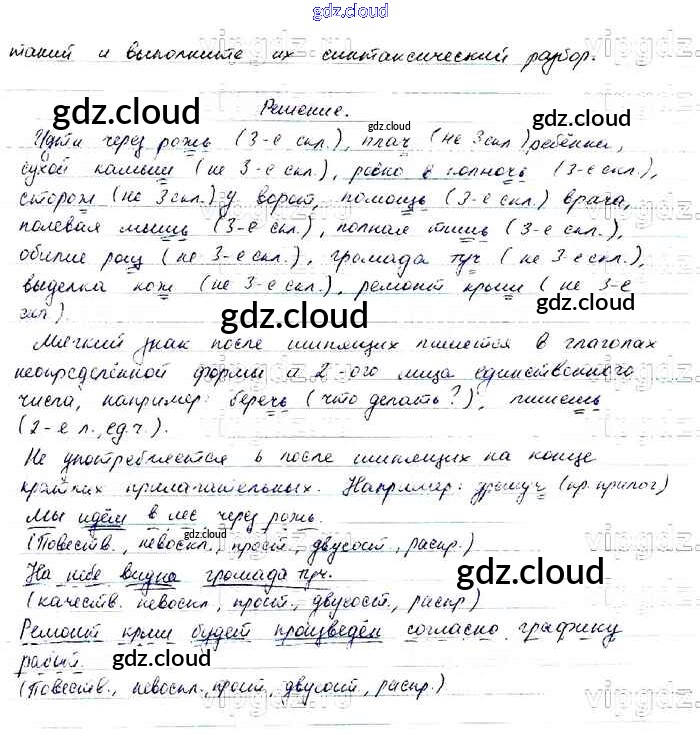 gdz.cloud
таний и выполните их синтаксический разбор.
Решение.
Идти через рожь (3-е скл.), плач (не 3 скл) ребёнка,
сухой камыш (не 3-е скл.), ровно в полночь (3-е скл.),
сторож (не 3 скл.) у ворот, помощь (3-е скл.) врача,
полевая мышь (3-е скл.), полная тишь (3-е скл.),
обилие рощ (не 3-е скл.), громада туч (не 3-е скл.),
выделка кож (не 3-е скл.), ремонт крыш (не 3-е
скл.).
Мягкий знак после шипящих пишется в глаголах
неопределённой формы и 2-ого лица единственного
числа, например: беречь (что делать?), пишешь
(2-е л., ед.ч.).
Не употребляется ь после шипящих на конце
кратких прилагательных. Например: дремуч (кр. прилаг)
Мы идём в лес через рожь.
(Повеств., невоскл., прост., двусост., распр.)
На небе видна громада туч.
(качеств. невоскл., прост., двусост., распр)
Ремонт крыш будет произведён согласно графику
работ.
(Повеств., невоскл., прост, двусост, распр.)